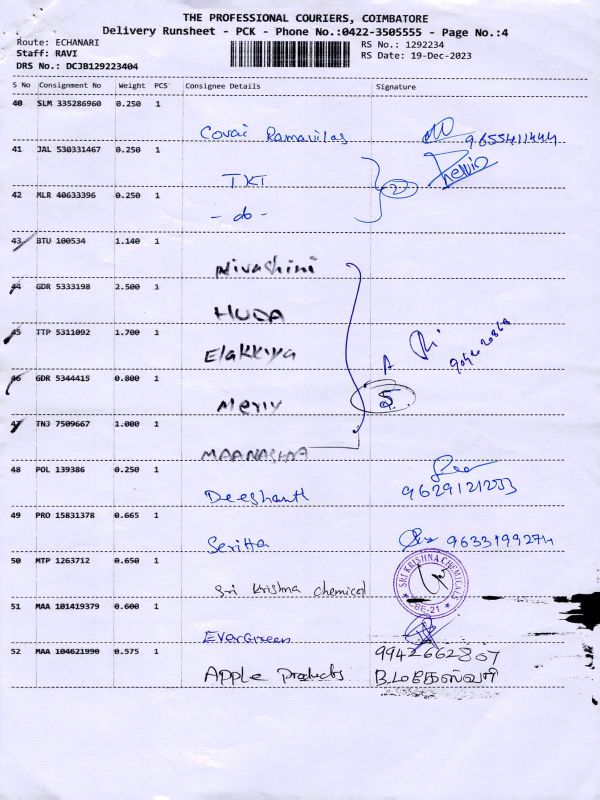 THE PROFESSIONAL COURIERS, COIMBATORE
Delivery Runsheet - PCK - Phone No.:0422-3505555 - Page No.:4
Route: ECHANARI
Staff: RAVI
DRS No.: DCJB129223404
RS No.: 1292234
RS Date: 19-Dec-2023
S No Consignment No Weight PCS Consignee Details Signature
40 SLM 335286960 0.250 1
Covai Ramavilas 9655411444
41 JAL 530331467 0.250 1
TKT
42 MLR 40633396 0.250 1
2
- do -
43 BTU 100534 1.140 1
Nivashini
44 GDR 5333198 2.500 1
HUDA
45 TTP 5311092 1.700 1
Elakkiya
46 GDR 5344415 0.800 1
5
Meriy
47 TNJ 7509667 1.000 1
48 POL 139386 0.250 1
Deeshanth
49 PRO 15831378 0.665 1
Seritta 9633199274
50 MTP 1263712 0.650 1
Sri Krishna chemical
SRI KRISHNA CHEMICALS
CBE-21
51 MAA 101419379 0.600 1
EverGreen
52 MAA 104621990 0.575 1
9942662807
Apple Products B.மகேஸ்வரி